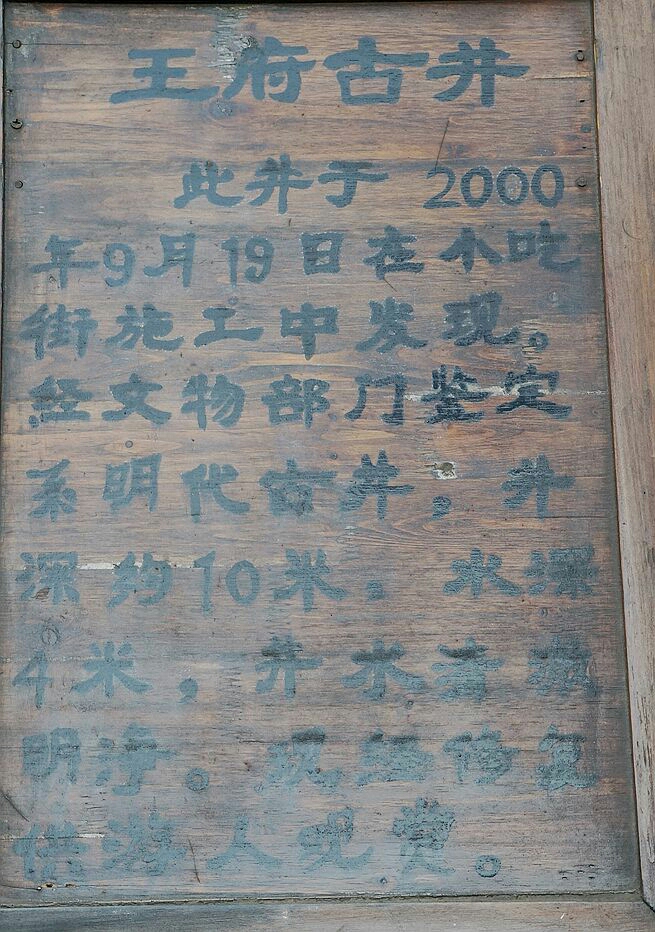 王府古井
此井于2000
年9月19日在小吃
街施工中发现。
经文物部门鉴定
系明代古井，井
深约10米，水深
4米，井水清澈
明净。现经修复
供游人观赏。